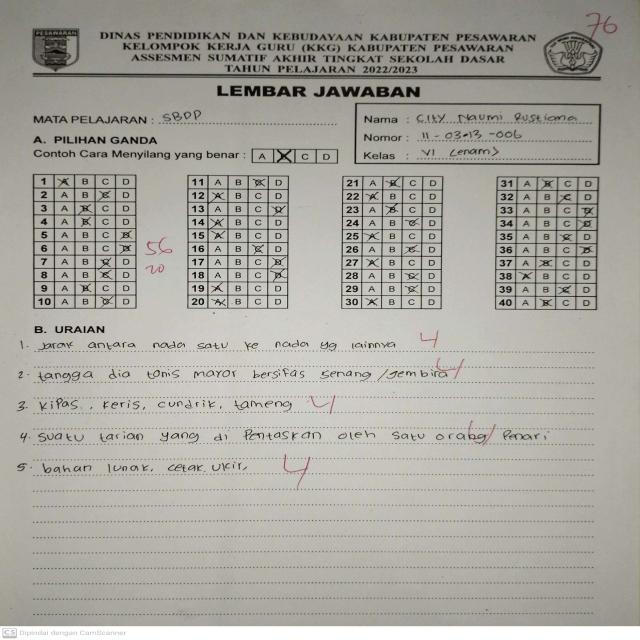 76
PESAWARAN
DINAS PENDIDIKAN DAN KEBUDAYAAN KABUPATEN PESAWARAN
KELOMPOK KERJA GURU (KKG) KABUPATEN PESAWARAN
ASSESMEN SUMATIF AKHIR TINGKAT SEKOLAH DASAR
TAHUN PELAJARAN 2022/2023
LEMBAR JAWABAN
MATA PELAJARAN : SBDP
Nama : City Naumi Rustiana
Nomor : 11-03-13-006
Kelas : VI (enam)
A. PILIHAN GANDA
Contoh Cara Menyilang yang benar : A X C D
1 A B C D 11 A B C D 21 A B C D 31 A B C D
2 A B C D 12 A B C D 22 A B C D 32 A B C D
3 A B C D 13 A B C D 23 A B C D 33 A B C D
4 A B C D 14 A B C D 24 A B C D 34 A B C D
5 A B C D 15 A B C D 25 A B C D 35 A B C D
6 A B C D 16 A B C D 26 A B C D 36 A B C D
7 A B C D 17 A B C D 27 A B C D 37 A B C D
8 A B C D 18 A B C D 28 A B C D 38 A B C D
9 A B C D 19 A B C D 29 A B C D 39 A B C D
10 A B C D 20 A B C D 30 A B C D 40 A B C D
56
20
B. URAIAN
1. Jarak antara nada satu ke nada yg lainnya 4
2. tangga dia tonis mayor bersifas senang /gembira 4
3. Kipas, keris, cundrik, tameng 4
4. Suatu tarian yang di Pentaskan oleh satu orang/ Penari 4
5. bahan lunak, cetak, ukir, 4
CS Dipindai dengan CamScanner